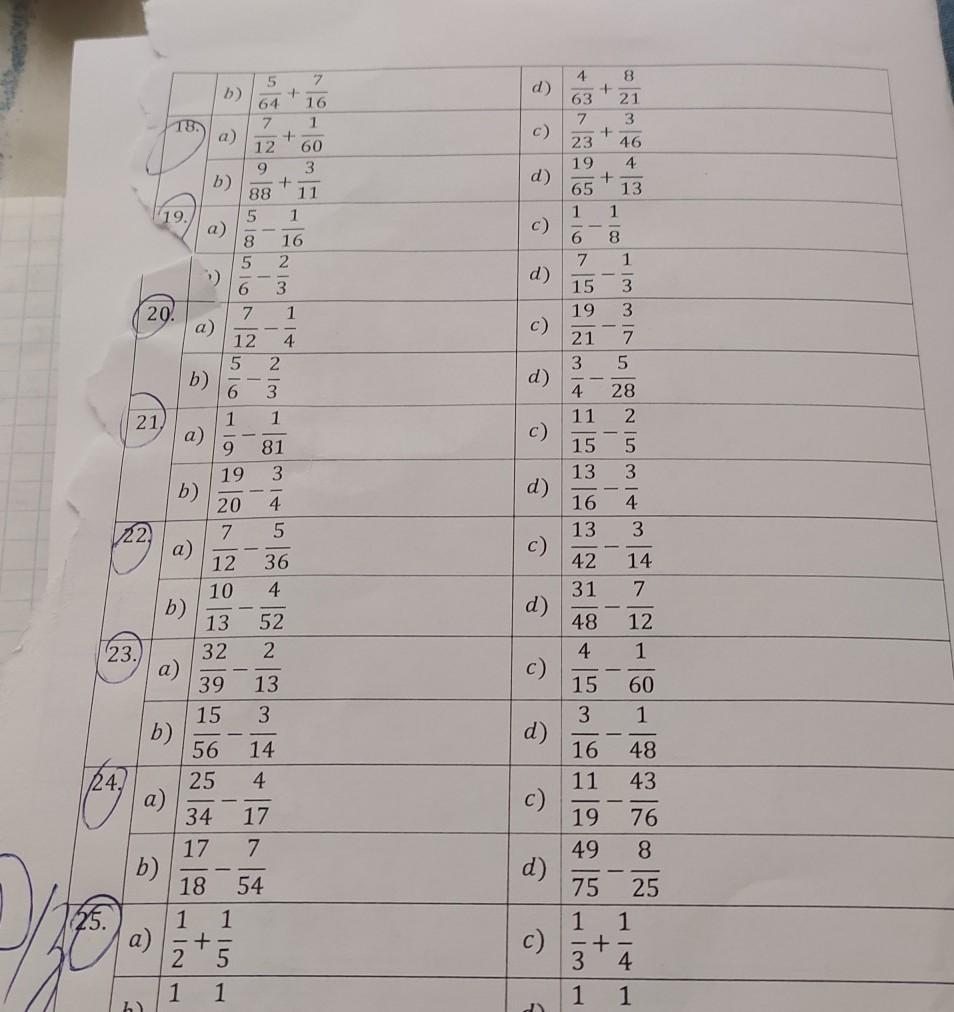 b) 5/64 + 7/16 d) 4/63 + 8/21
18. a) 7/12 + 1/60 c) 7/23 + 3/46
b) 9/88 + 3/11 d) 19/65 + 4/13
19. a) 5/8 − 1/16 c) 1/6 − 1/8
) 5/6 − 2/3 d) 7/15 − 1/3
20. a) 7/12 − 1/4 c) 19/21 − 3/7
b) 5/6 − 2/3 d) 3/4 − 5/28
21. a) 1/9 − 1/81 c) 11/15 − 2/5
b) 19/20 − 3/4 d) 13/16 − 3/4
22. a) 7/12 − 5/36 c) 13/42 − 3/14
b) 10/13 − 4/52 d) 31/48 − 7/12
23. a) 32/39 − 2/13 c) 4/15 − 1/60
b) 15/56 − 3/14 d) 3/16 − 1/48
24. a) 25/34 − 4/17 c) 11/19 − 43/76
b) 17/18 − 7/54 d) 49/75 − 8/25
25. a) 1/2 + 1/5 c) 1/3 + 1/4
b) 1 1 d) 1 1